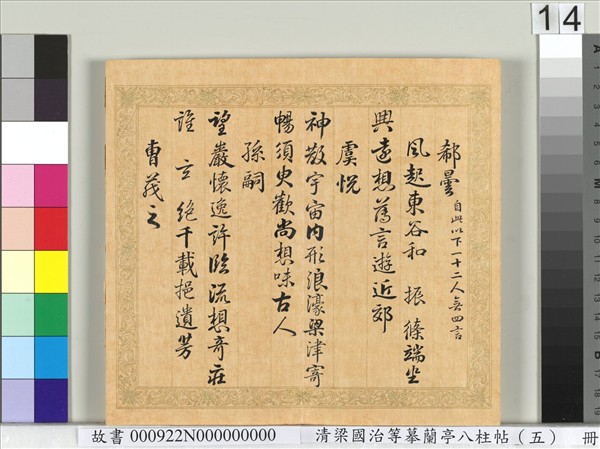 郗曇 自此以下一十二人無四言
風起東谷和 振篠端坐
興遠想薄言遊近郊
虞悅
神散宇宙內形浪濠梁津寄
暢須臾歡尚想味古人
孫嗣
望巖懷逸許臨流想奇莊
誰云絕千載挹遺芳
曹茂之
14
故書 000922N000000000 清梁國治等摹蘭亭八柱帖（五） 冊